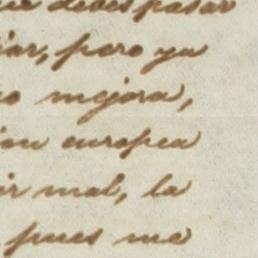 que debes pasar
iar, pero ya
o mejora,
ion europea
ir mal, la
pues me